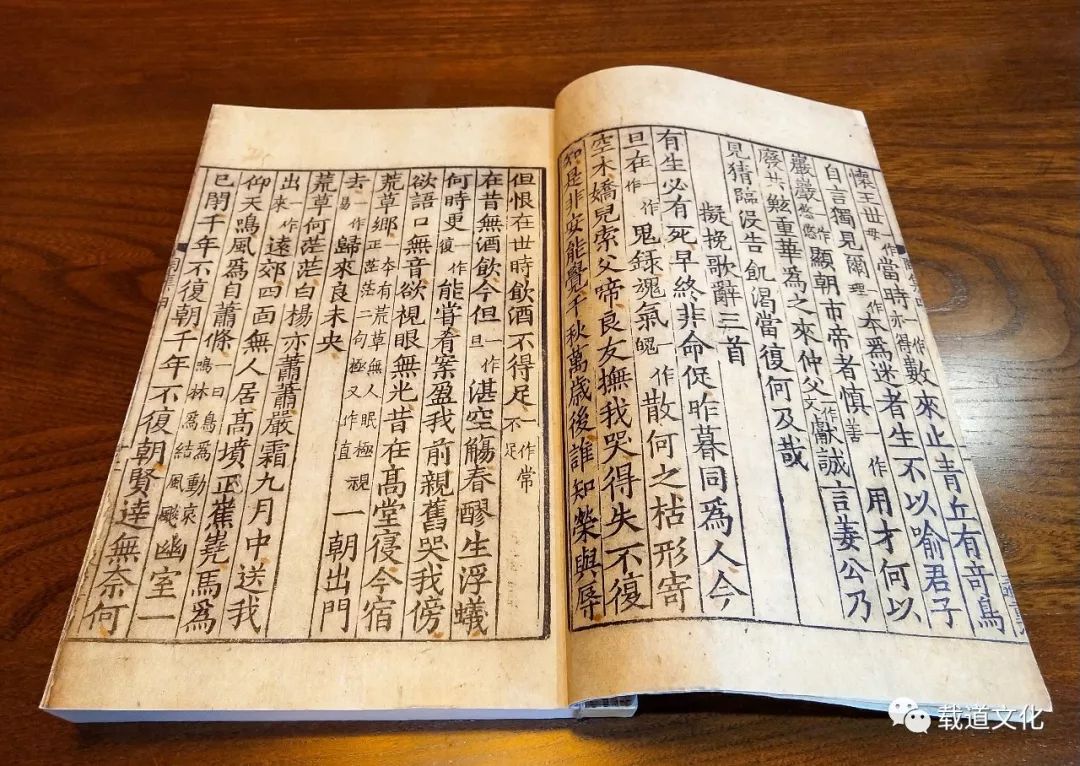 懷王世一作母當時一作亦得數來止青丘有奇鳥
自言獨見爾一作理本為迷者生不以喻君子
巖巖一作悠悠顯朝市帝者慎一作善用才何以
廢共鯀重華為之來仲父一作文獻誠言姜公乃
見猜臨沒告飢渴當復何及哉
擬挽歌辭三首
有生必有死早終非命促昨暮同為人今
旦在一作作鬼録魂氣一作魄散何之枯形寄
空木嬌兒索父啼良友撫我哭得失不復
知是非安能覺千秋萬歲後誰知榮與辱
但恨在世時飲酒不得足一作常不足
在昔無酒飲今但一作旦湛空觴春醪生浮蟻
何時更一作復能嘗肴案盈我前親舊哭我傍
欲語口無音欲視眼無光昔在高堂寢今宿
荒草鄉一本有荒草無人眠極視正茫茫二句極又作直一朝出門
去一作易歸來良未央
荒草何茫茫白楊亦蕭蕭嚴霜九月中送我
出一作來遠郊四面無人居高墳正嶣嶢馬為
仰天鳴風為自蕭條一曰鳥為動哀鳴林為結風飈幽室一
已閉千年不復朝千年不復朝賢達無奈何
载道文化